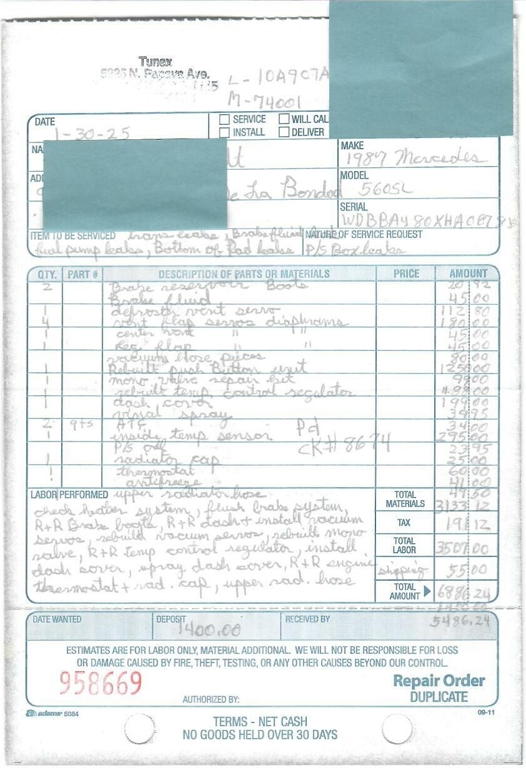 Tunex
L-10A9C7A
M-74001
DATE
1-30-25
SERVICE WILL CAL
INSTALL DELIVER
MAKE
1987 Mercedes
MODEL
560SL
SERIAL
ITEM TO BE SERVICED trans leaks, Brake fluid NATURE OF SERVICE REQUEST
fuel pump leaks, Bottom of Rad leaks P/S Box leaks
QTY. PART # DESCRIPTION OF PARTS OR MATERIALS PRICE AMOUNT
2 Brake reservoir Boots 20 92
Brake fluid 45.00
1 defroster vent servo 112 80
4 vent flap servos diaphrams 180.00
1 center vent " " 45 00
1 Rec. flap " " 45 00
vacuum hose pieces 80 00
1 Rebuilt push Button unit 00
1 mono valve repair kit 00
1 rebuilt temp control regulator
1 dash cover 199.00
vinal spray 39.95
2 qts ATF Pd 34 00
1 inside temp sensor CK# 8674 295.00
P/S oil 23.95
1 radiator cap 25 00
1 thermostat 60.00
antifreeze 41 00
LABOR PERFORMED upper radiator hose 49.50
check heater system, flush brake system,
R+R Brake boots, R+R dash + install vacuum
servos, rebuild vacuum servos, rebuild mono
valve, R+R temp control regulator, install
dash cover, spray dash cover, R+R engine
thermostat + rad. cap, upper rad. hose
TOTAL MATERIALS 3133 12
TAX 191 12
TOTAL LABOR 3507.00
shipping 55.00
TOTAL AMOUNT 6886.24
1400.00
5486.24
DATE WANTED DEPOSIT RECEIVED BY
1400.00
ESTIMATES ARE FOR LABOR ONLY, MATERIAL ADDITIONAL. WE WILL NOT BE RESPONSIBLE FOR LOSS
OR DAMAGE CAUSED BY FIRE, THEFT, TESTING, OR ANY OTHER CAUSES BEYOND OUR CONTROL.
958669
Repair Order
DUPLICATE
AUTHORIZED BY:
adams 5084
09-11
TERMS - NET CASH
NO GOODS HELD OVER 30 DAYS